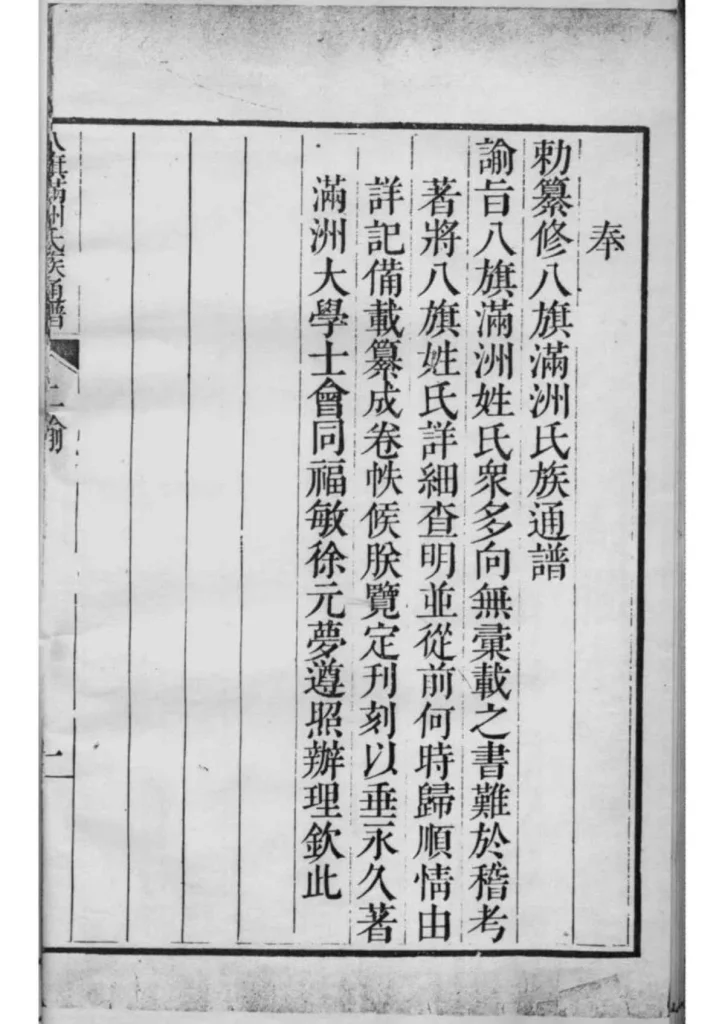 奉
勅纂修八旗滿洲氏族通譜
諭旨八旗滿洲姓氏衆多向無彙載之書難於稽考
著將八旗姓氏詳細查明並從前何時歸順情由
詳記備載纂成卷帙候朕覽定刊刻以垂永久著
滿洲大學士會同福敏徐元夢遵照辦理欽此
八旗滿洲氏族通譜
上諭
一